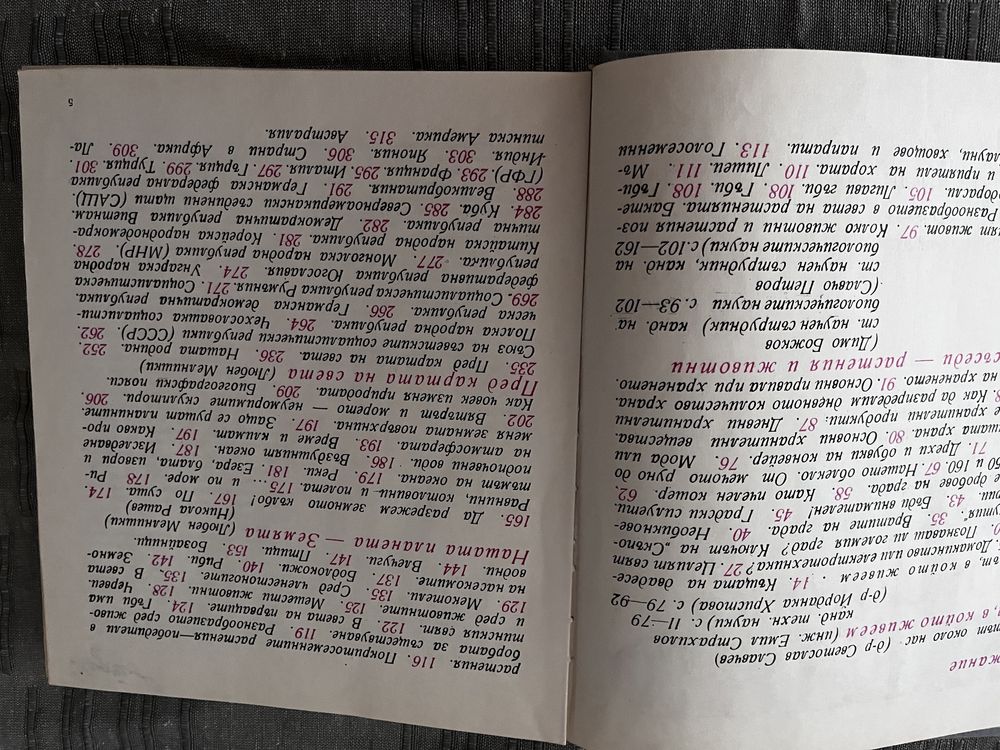 жание
ът около нас (д-р Светослав Славчев)
в, в който живеем (инж. Емил Страхилов
канд. техн. науки) с. 11—79
(д-р Йорданка Христова) с. 79—92
т, в който живеем . 14. Къщата на двадесе-
Домакинство или електротехника? 27. Целият свят
Познаваш ли големия град? Ключът на „Скъпо-
35. Вратите на града. 40. Необикнове-
43. Бъди внимателен! 45. Градски силуети.
е дробове на града. 58. Като пчелен кошер. 62.
60 и 160. 67. Нашето облекло. От мечото руно до
71. Дрехи и обувки на конвейер. 76. Мода или
ашата храна. 80. Основни хранителни вещества.
е хранителни продукти. 87. Дневни хранителни
8. Как да разпределим дневното количество храна.
на храненето. 91. Основни правила при храненето.
съседи — растения и животни
(Димо Божков
ст. научен сътрудник) канд. на
биологическите науки с. 93—102
(Славчо Петров
ст. научен сътрудник, канд. на
биологическите науки) с. 102—162
ят живот. 97. Колко животни и растения поз-
Разнообразието в света на растенията. Бакте-
одорасли. 105. Лигави гъби. 108. Гъби. 108. Гъби-
и приятели на хората. 110. Лишеи. 111. Мъ-
лауни, хвощове и папрати. 113. Голосеменни
растения. 116. Покритосеменните растения—победители в
борбата за съществуване. 119. Разнообразието сред живо-
тинския свят. 122. В света на перваците. 124. Гъби има
и сред животните. 125. Срещи мешести животни. 128. Черви.
129. Мекотели. 135. Сред членестоногите. 135. В света
на насекомите. 137. Бодлокожи. 140. Риби. 142. Земно-
водни. 144. Влечуги. 147. Птици. 153. Бозайници.
Нашата планета — Земята (Любен Мелнишки)
(Никола Рашев)
165. Да разрежем земното кълбо! 167. По суша. 174.
Равнини, котловини и полета. 175. ... и по море. 178. Ри-
тъмът на океана. 179. Реки. 181. Езера, блата, извори и
подпочвени води. 186. Въздушният океан. 187. Изследване
на атмосферата. 193. Време и климат. 197. Какво про-
меня земната повърхнина. 197. Защо се рушат планините.
202. Вятърът и морето — неуморните скулптори. 206.
Как човек изменя природата. 209. Биогеографски пояси.
Пред картата на света (Любен Мелнишки)
235. Пред картата на света. 236. Нашата родина. 252.
Съюз на съветските социалистически републики (СССР). 262.
Полска народна република. 264. Чехословашка социалисти-
ческа република. 266. Германска демократична република.
269. Социалистическа република Румъния. 271. Социалистическа
федеративна република Югославия. 274. Унгарска народна
република. 277. Монголска народна република (МНР). 278.
Китайска народна република. 281. Корейска народнодемокра-
тична република. 282. Демократична република Виетнам.
284. Куба. 285. Североамерикански съединени щати (САЩ).
288. Великобритания. 291. Германска федерална република
(ГФР). 293. Франция. 295. Италия. 297. Гърция. 299. Турция. 301.
Индия. 303. Япония. 306. Страни в Африка. 309. Ла-
тинска Америка. 315. Австралия.
5